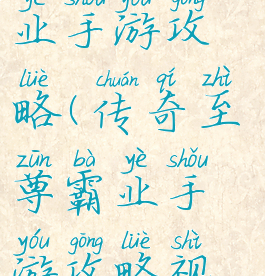 yè shǒu yóu gōng
业手游攻
lüè chuán qí zhì
略(传奇至
zūn bà yè shǒu
尊霸业手
yóu gōng lüè shì
游攻略视